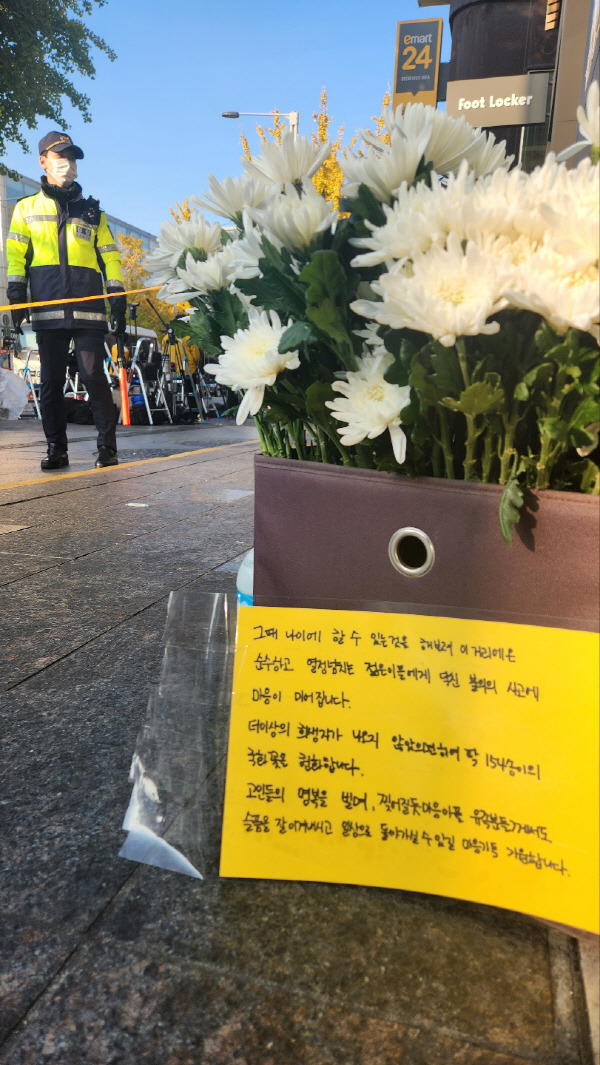 emart
24
Foot Locker
그때 나이에 할 수 있는것을 해보려 이거리에온
순수하고 열정넘치는 젊은이들에게 덮친 불의의 사고에
마음이 미어집니다.
더이상의 희생자가 나오지 않았으면하여 딱 154송이의
국화꽃을 헌화합니다.
고인들의 명복을 빌며, 찢어질듯마음아픈 유족분들께서도
슬픔을 잘 이겨내시고 일상으로 돌아가실 수 있길 마음가득 기원합니다.